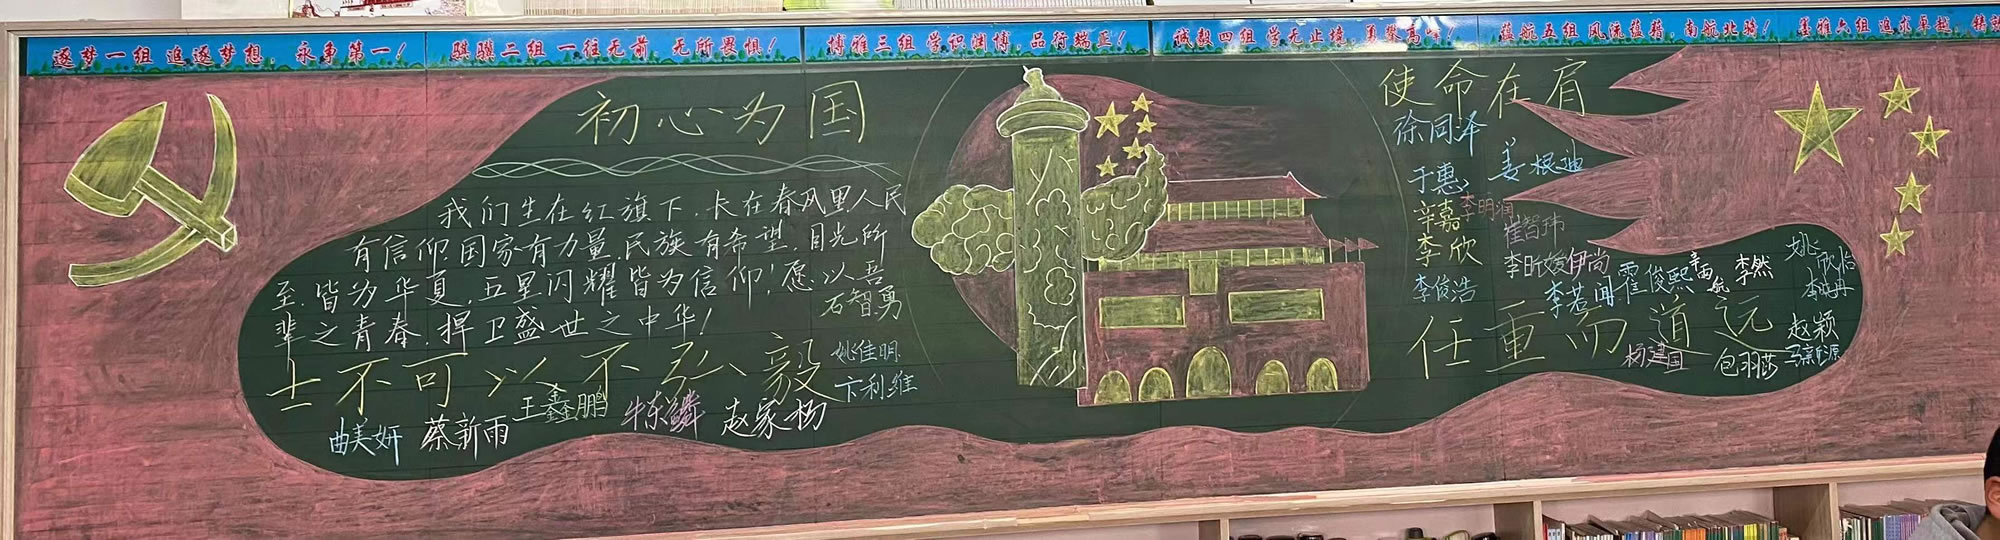 逐梦一组 追逐梦想，永争第一！
骐骥二组 一往无前 无所畏惧！
博雅三组 学识渊博，品行端正！
诚毅四组 学无止境，勇攀高峰！
五组 风流蕴藉，南航北骑！
六组 追求卓越，
初心为国
我们生在红旗下，长在春风里人民
有信仰国家有力量，民族有希望，目光所
至，皆为华夏，五星闪耀皆为信仰！愿以吾
辈之青春，捍卫盛世之中华！
士不可以不弘毅
石智勇
姚佳明
卞利维
曲美妍 蔡新雨 王鑫鹏 牛东鳞 赵家杨
使命在肩
徐同泽
于惠 姜根迪
辛嘉 李明润
李欣 崔智玮
李俊浩 李昕嫒 伊尚
李若闻 霍俊熙 李然
姚欣怡
任重而道远
杨建国 包羽莎
赵颖